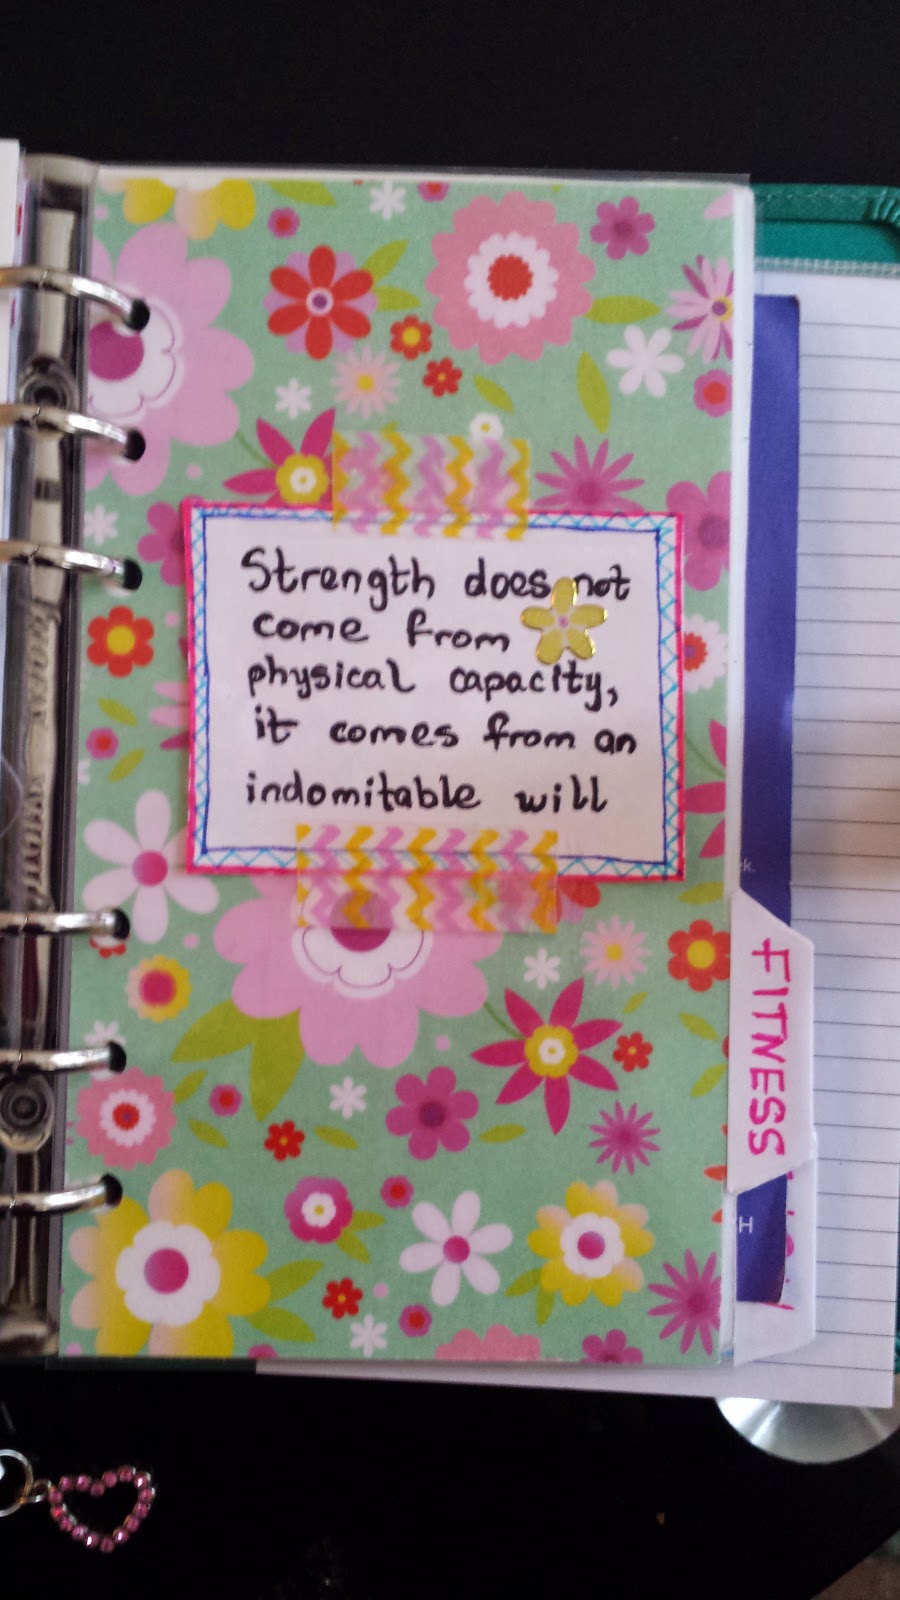 Strength does not
come from
physical capacity,
it comes from an
indomitable will
FITNESS
k.
H